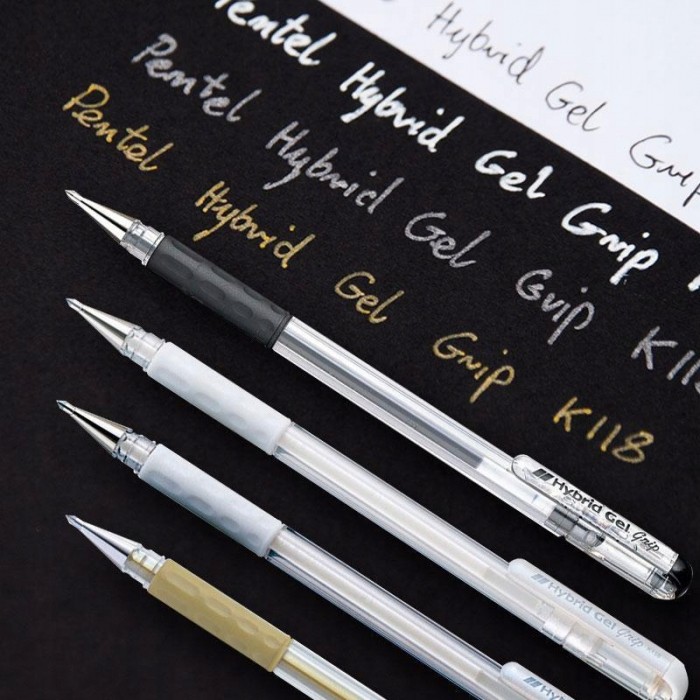 Hybrid Gel Grip
Pentel Hybrid Gel Grip
Pentel Hybrid Gel Grip K118
Pentel Hybrid Gel Grip K118
Hybrid Gel Grip
Hybrid Gel Grip K118
Hybrid